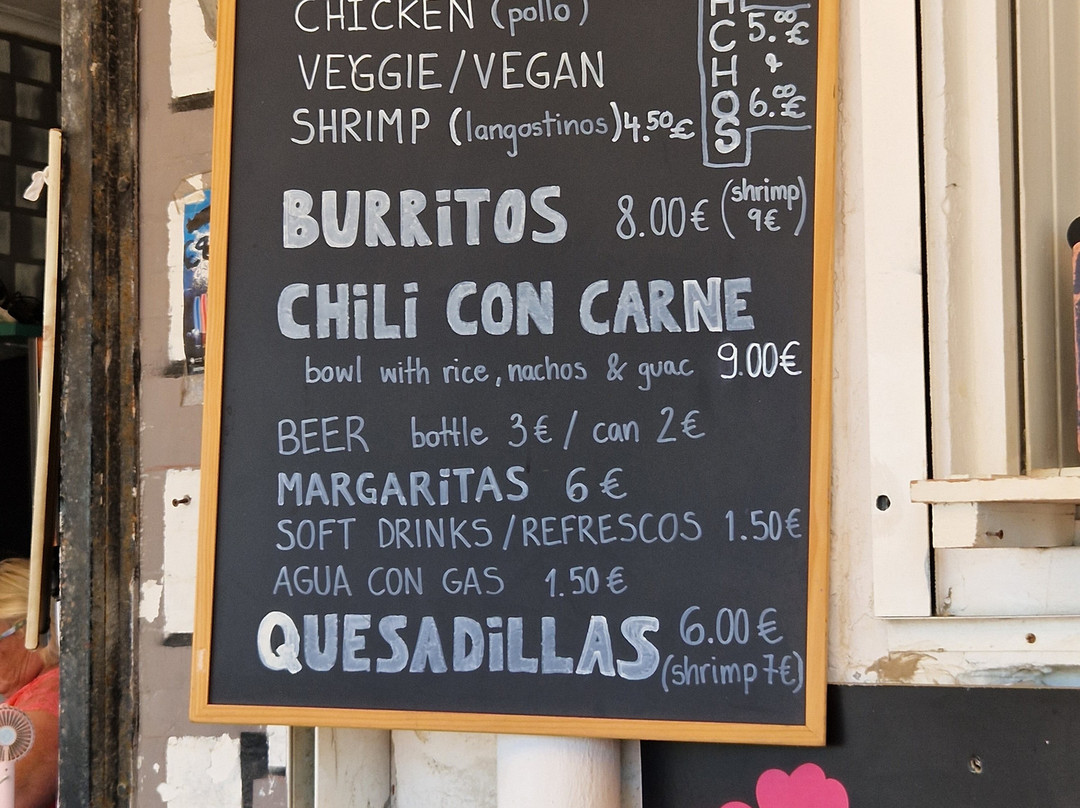 CHICKEN (pollo)
VEGGIE/VEGAN
SHRIMP (langostinos) 4.50€
CHOS
5.00€
&
6.00€
BURRiTOS 8.00€ (shrimp 9€)
CHiLi CON CARNE
bowl with rice, nachos & guac 9.00€
BEER bottle 3€ / can 2€
MARGARiTAS 6€
SOFT DRINKS/REFRESCOS 1.50€
AGUA CON GAS 1.50€
QUESADiLLAS 6.00€
(shrimp 7€)